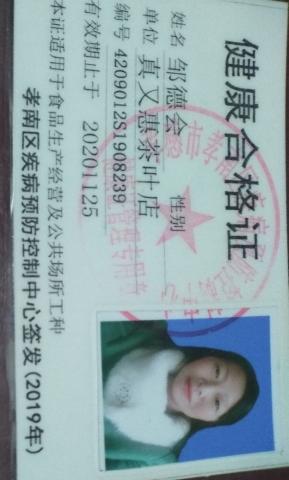 健康合格证
姓名 邹德会 性别
单位 真又惠茶叶店
编号 4209012S1908239
有效期止于 20201125
本证适用于食品生产经营及公共场所工种
孝南区疾病预防控制中心签发(2019年)